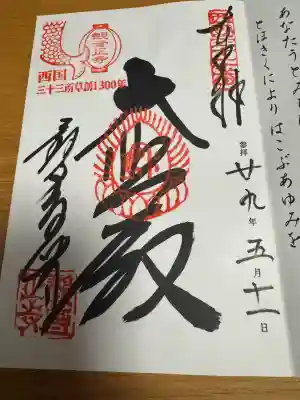 あなたうとみ
とほきくによりはこぶあゆみを
奉拝
参拝 廿九年五月十一日
大悲殿
観音正寺
西国
三十三所草創1300年
観音正寺